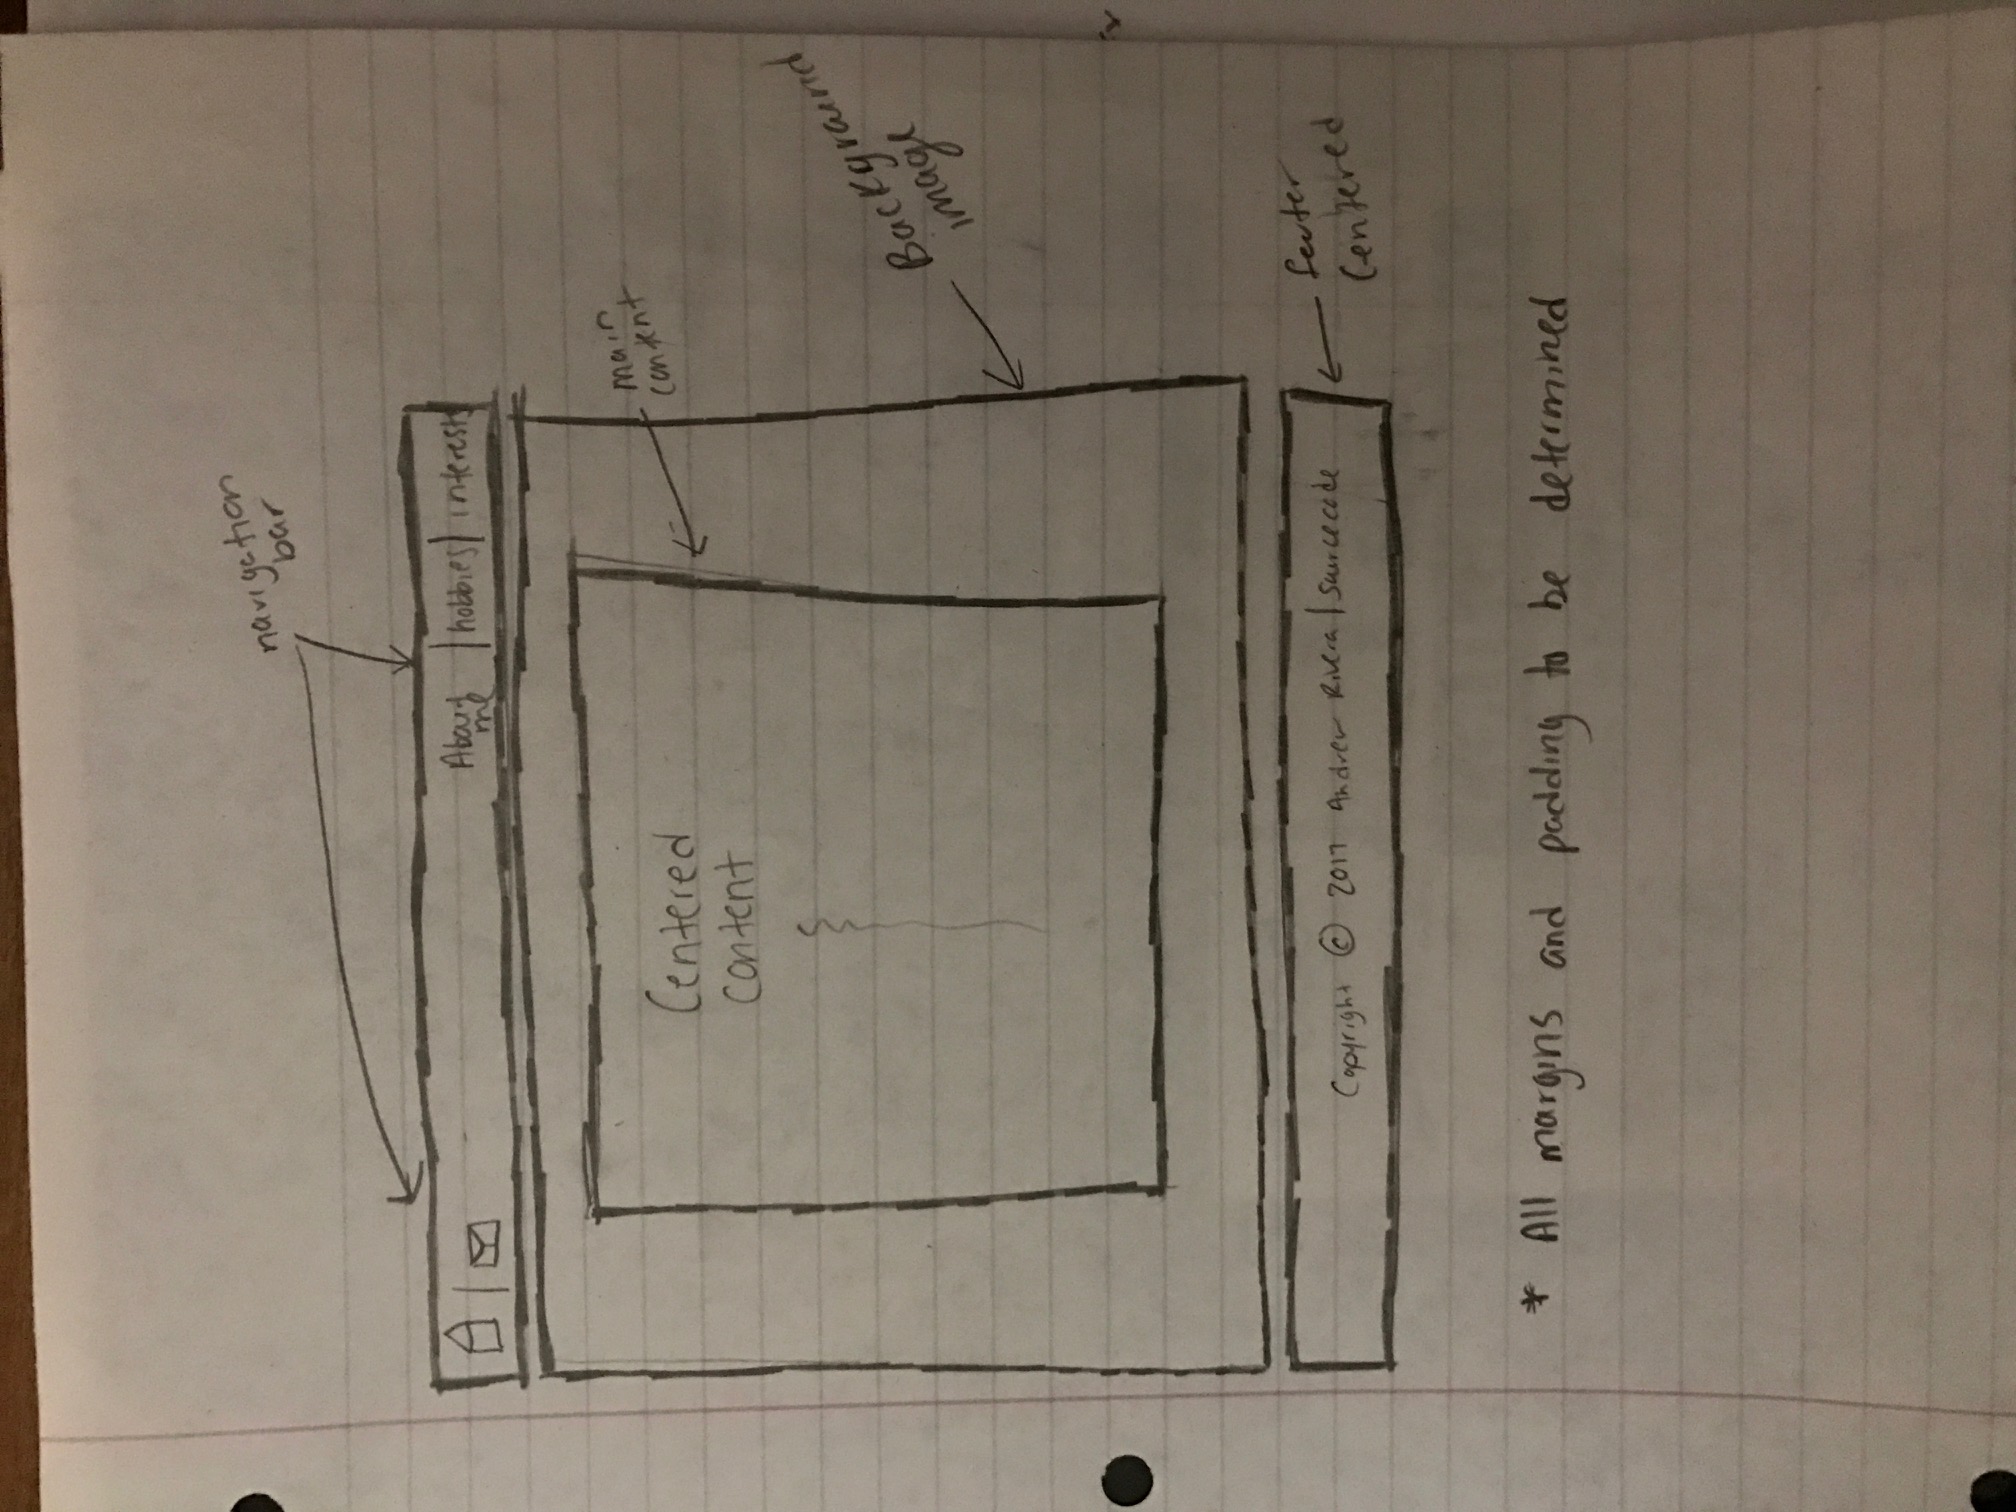 navigation
bar
About
me | hobbies | interests
Centered
content
main
content
Background
image
Copyright © 2017 Andrew Rivera | Sourcecode
Centered
* All margins and padding to be determined